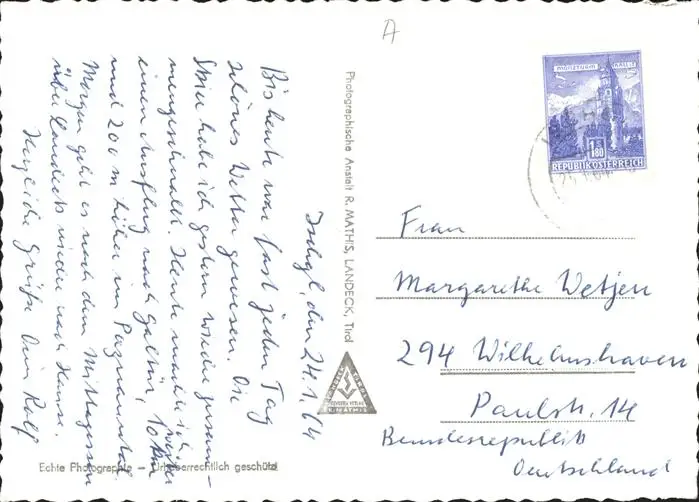 A
Ischgl, den 24.1.64
Bis heute war fast jeden Tag
schönes Wetter gewesen. Die
Skier habe ich gestern wieder zusam-
mengeschnallt. Heute mache ich
einen Ausflug nach Galtür, 10 km weiter
und 200 m höher im Paznauntal
Morgen geht es nach dem Mittagessen
über Landeck wieder nach Hause.
Herzliche Grüße Dein Rolf
Echte Photographie – Urheberrechtlich geschützt
Photographische Anstalt R. MATHIS, LANDECK, Tirol
R. MATHIS
MÜNZTURM HALL i. T.
S S
1.80
REPUBLIK ÖSTERREICH
Frau
Margarethe Wetjen
294 Wilhelmshaven
Paulstr. 14
Bundesrepublik
Deutschland